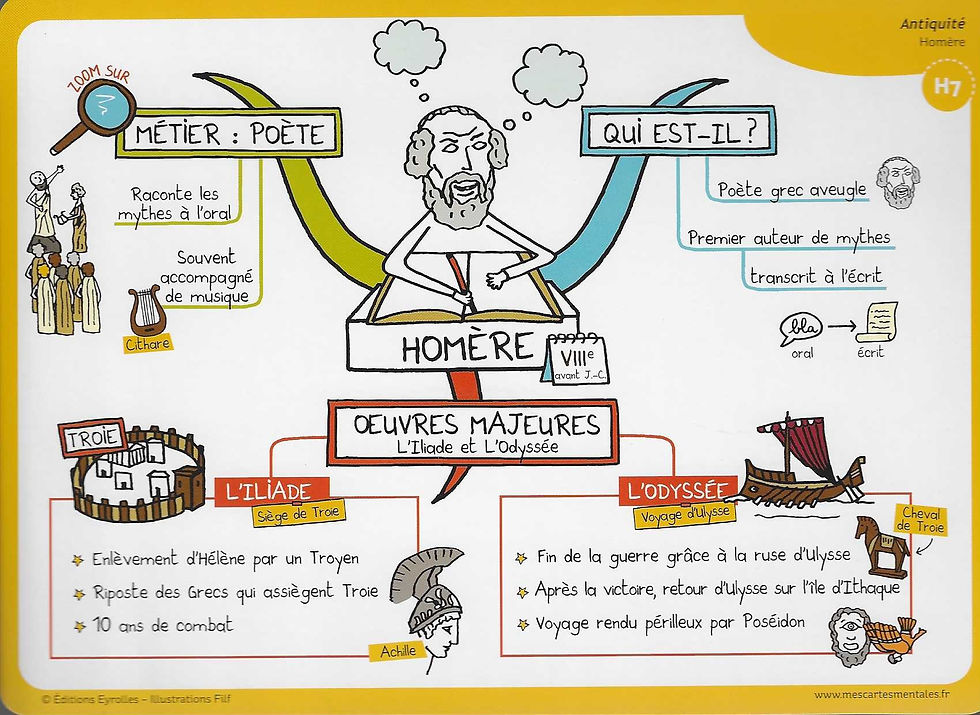 Antiquité
Homère
H7
ZOOM SUR
MÉTIER : POÈTE
Raconte les
mythes à l'oral
Souvent
accompagné
de musique
Cithare
QUI EST-IL ?
Poète grec aveugle
Premier auteur de mythes
transcrit à l'écrit
bla
oral
écrit
HOMÈRE
VIIIe
avant J.-C.
OEUVRES MAJEURES
L'Iliade et L'Odyssée
TROIE
L'ILIADE
Siège de Troie
Enlèvement d'Hélène par un Troyen
Riposte des Grecs qui assiègent Troie
10 ans de combat
Achille
L'ODYSSÉE
Voyage d'Ulysse
Cheval
de Troie
Fin de la guerre grâce à la ruse d'Ulysse
Après la victoire, retour d'Ulysse sur l'île d'Ithaque
Voyage rendu périlleux par Poséidon
© Éditions Eyrolles – Illustrations Filf
www.mescartesmentales.fr